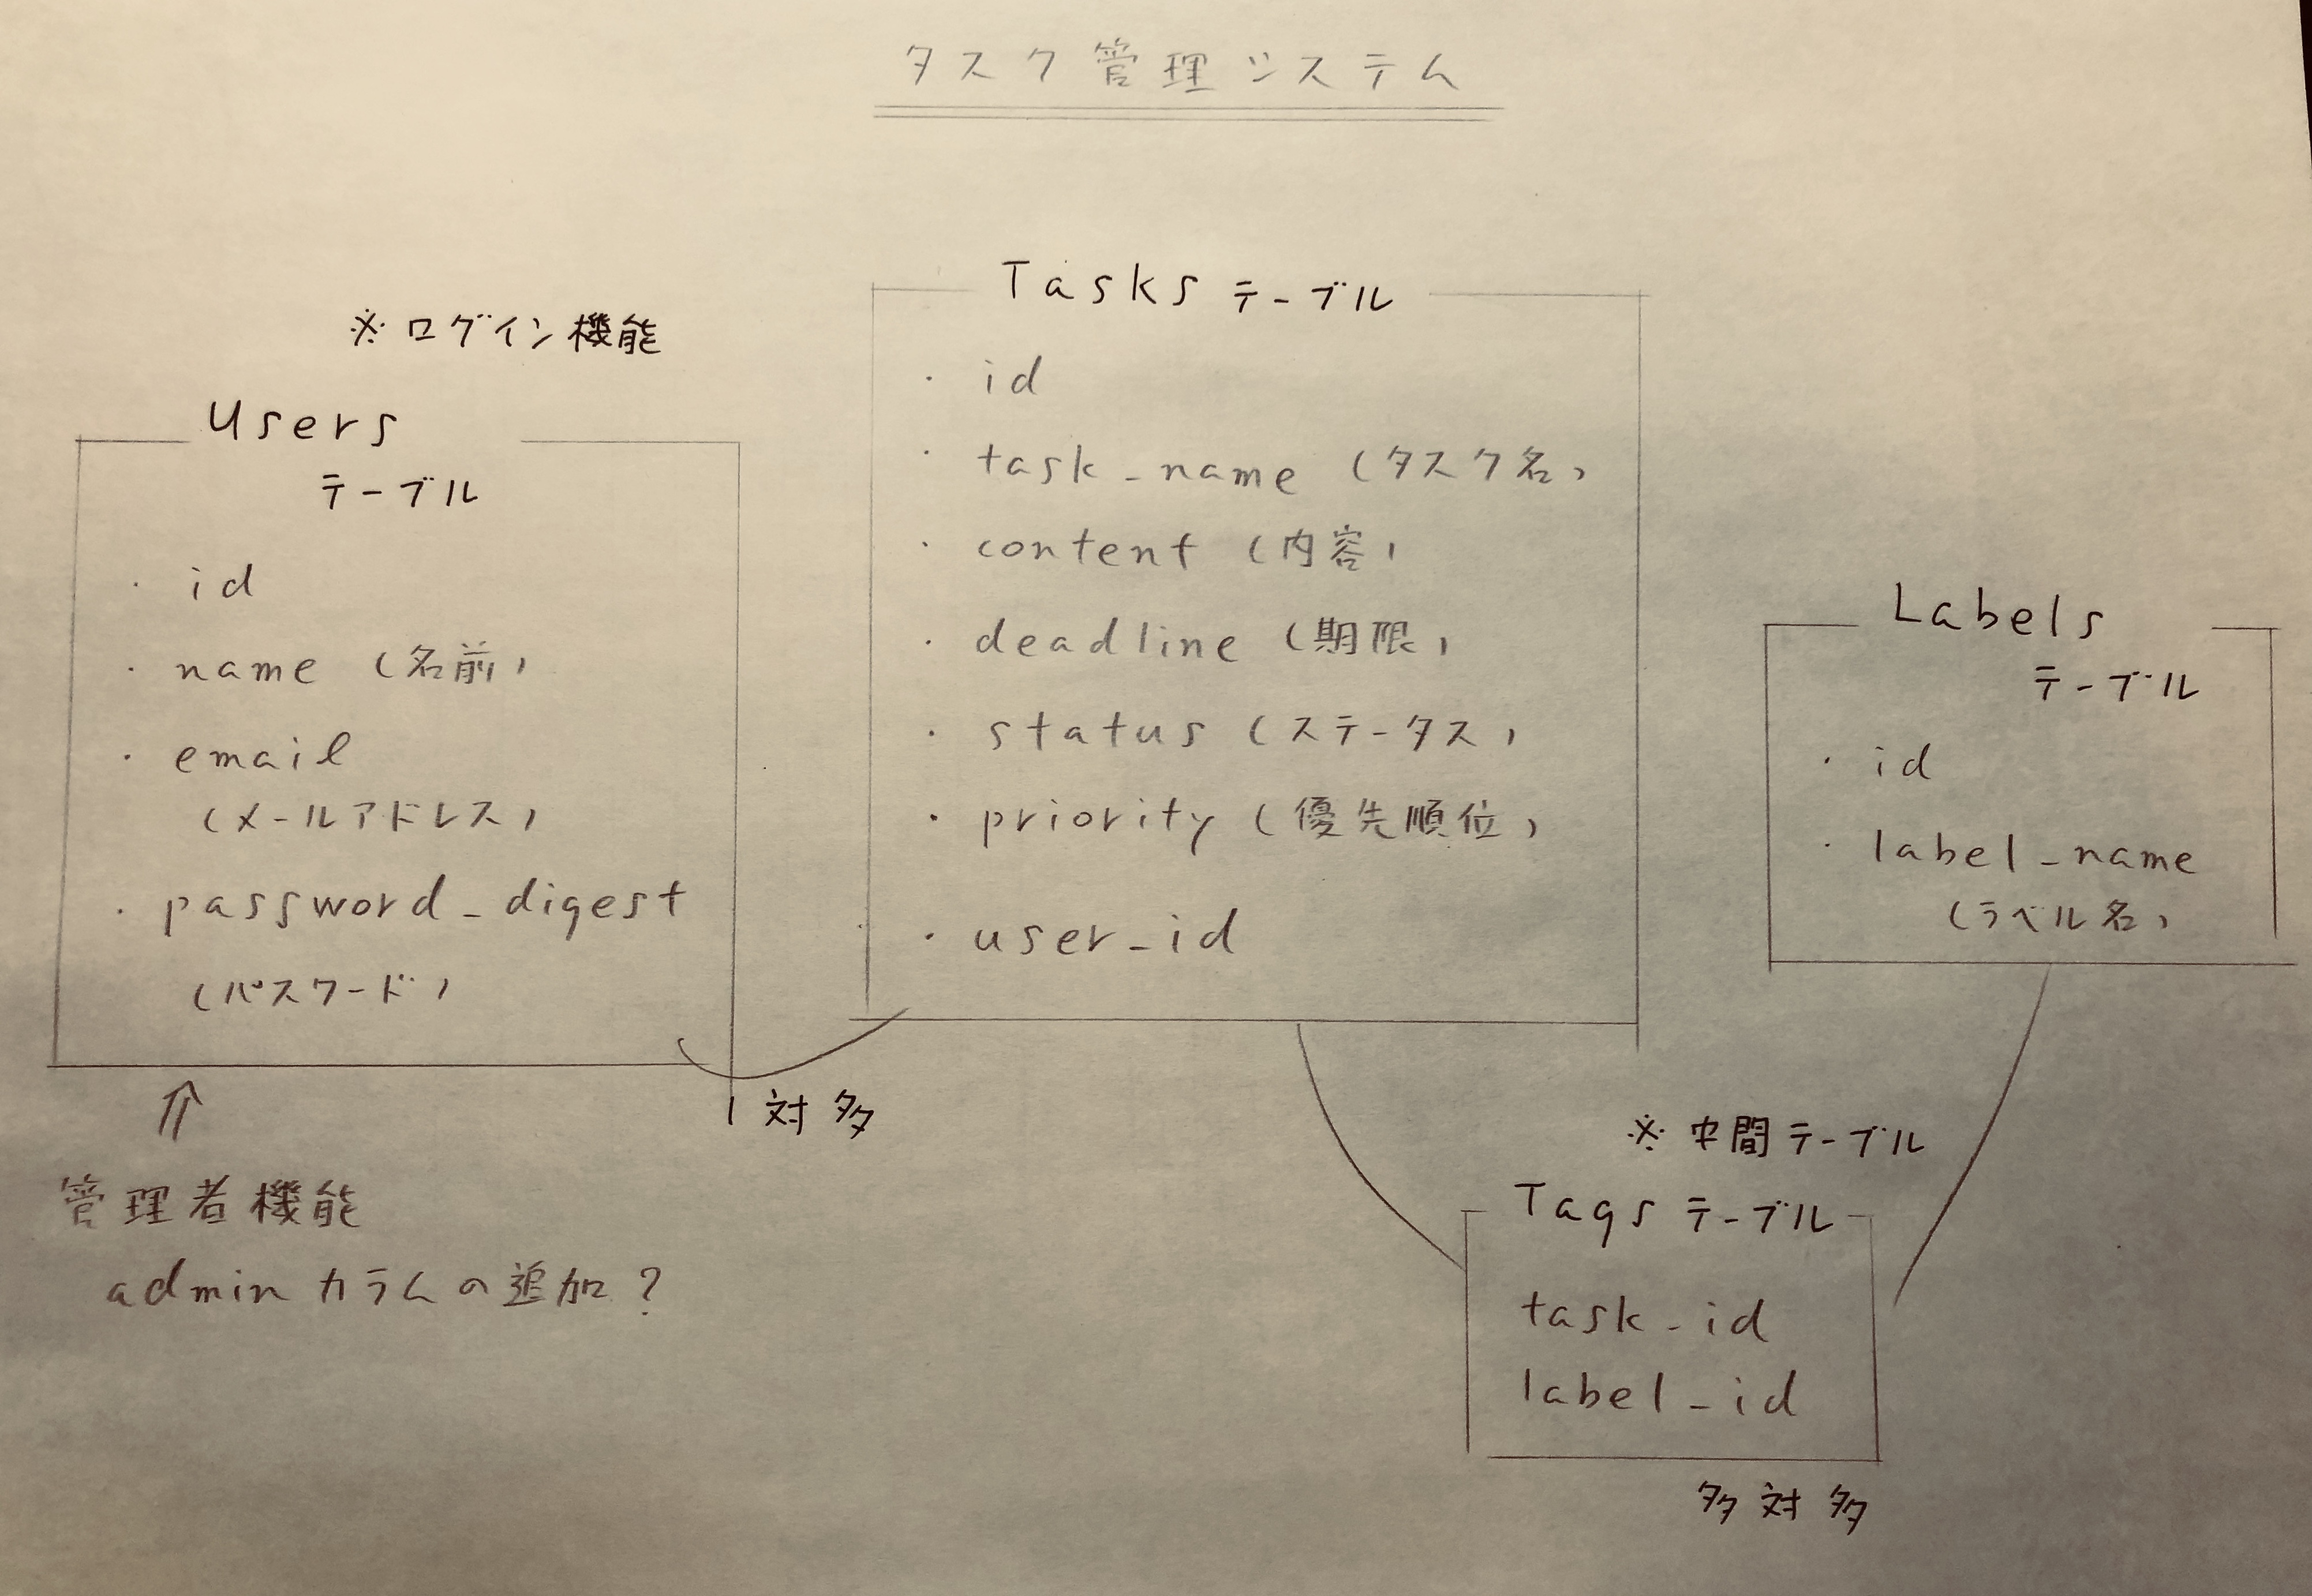 タスク管理システム
※ログイン機能
Users
テーブル
・id
・name (名前)
・email
(メールアドレス)
・password_digest
(パスワード)
⇑
管理者機能
adminカラムの追加?
1対多
Tasks テーブル
・id
・task_name (タスク名)
・content (内容)
・deadline (期限)
・status (ステータス)
・priority (優先順位)
・user_id
Labels
テーブル
・id
・label_name
(ラベル名)
※中間テーブル
Tags テーブル
task_id
label_id
多対多